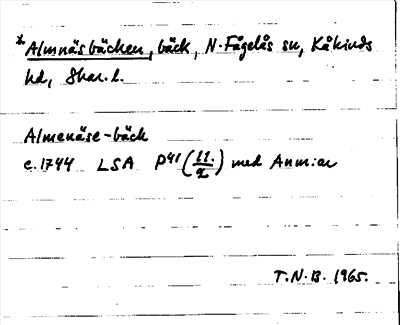 *Almnäsbäcken, bäck, N. Fågelås sn, Kåkinds
hd, Skar. l.
Almenäse-bäck
c. 1744 LSA P41 (11/2) med Anm:ar
T.N.B. 1965.